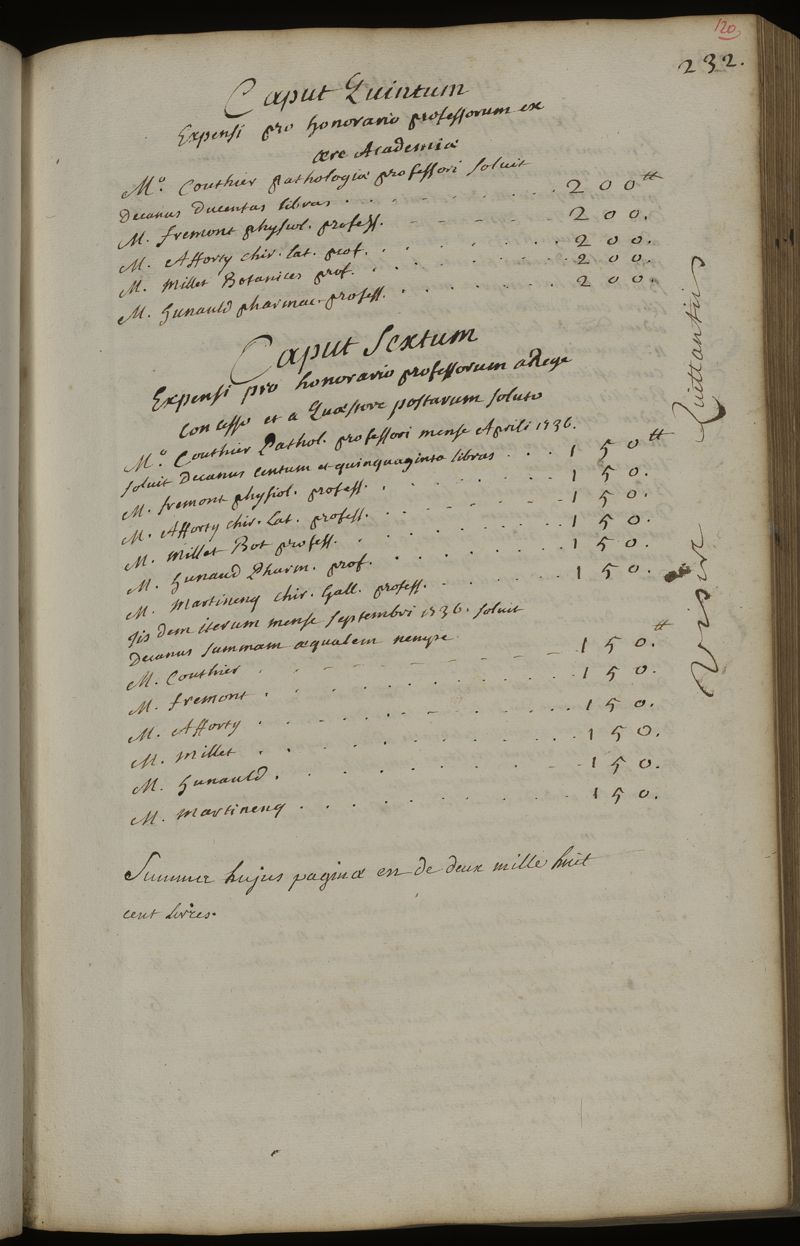 120
232.
Caput Quintum
Expensi pro honorario professorum ex
ære Academiæ
M.o Couthier pathologiæ professori soluit
Decanus Ducentas libras . . . . . . 200tt
M. fremont physiol. profess. - - - - - . 200.
M. Afforty chir. lat. prof. . . . . . . 200.
M. Millet Botanices prof. . . . . . . 200.
M. hunauld pharmac. profess. . . . . . . 200.
Caput Sextum
Expensi pro honorario professorum a Rege
Concesso et a Quæstore postarum soluto
M.o Couthier Pathol. professori mense Aprili 1736.
soluit Decanus centum et quinquaginta libras . . . 150tt
M. fremont physiol. profess. . . . . . . 150.
M. Afforty chir. Lat. profess. . . . . . . 150.
M. Millet Bot profess. . . . . . . 150.
M. hunaud Pharm. prof. . . . . . . 150.
M. Martinenq chir. Gall. profess. . . . . . . 150.
Jis dem iterum mense septembri 1736. soluit
Decanus summam æqualem nempe
M. Couthier . . . . . . 150.tt
M. fremont . . . . . . 150.
M. Afforty . . . . . . 150.
M. Millet . . . . . . 150.
M. hunauld . . . . . . 150.
M. Martinenq . . . . . . 150.
Summa hujus paginæ en de deux mille huit
cent livres.
Visæ Quittantiis